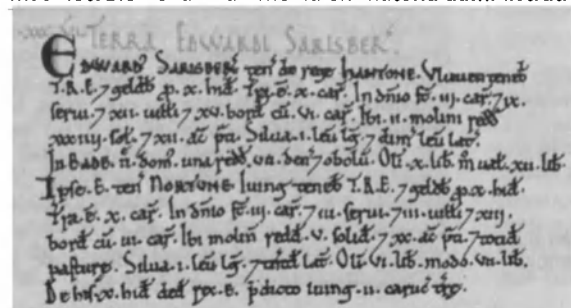 TERRA EDWARDI SARISBER̃.
EDWARD' SARISBER̃ ten̄ de rege HANTONE. Vluuen teneb̃
T.R.E. ⁊ geldb̃ p. x. hid̃. Tr̃a. ē. x. car̃. In dn̄io st̃. iij. car̃. ⁊ ix.
serui. ⁊ xii. uilli ⁊ xv. bord̃ cū. vi. car̃. Ibi. ii. molini redd̃
sol̃. ⁊ xii. ac̃ p̃ti. Silua. i. leũ lg̃. ⁊ dim̃ leũ lat̃.
In BADE. n̄. dom̃. una redd̃. vii. den̄ ⁊ obolũ. Olĩ. x. lib̃. m̊ ual̃. xii. lib̃.
Ipse. E. ten̄ NORTUNE. Iuing teneb̃ T.R.E. ⁊ geldb̃. p. x. hid̃.
Tr̃a. ē. x. car̃. In dn̄io st̃. iij. car̃. ⁊ iii. serui. ⁊ iii. uilli ⁊ xiij.
bord̃ cū. iii. car̃. Ibi molin̄ redd̃. v. solid̃. ⁊ xx. ac̃ p̃ti. ⁊ totid̃
pasturę. Silua. i. leũ lg̃. ⁊ tñtd̃ lat̃. Olĩ. vi. lib̃. modo. vii. lib̃.
De his. x. hid̃ ded̃ rex. E. p̃dicto Iuing. ii. caruc̃ tr̃ę.